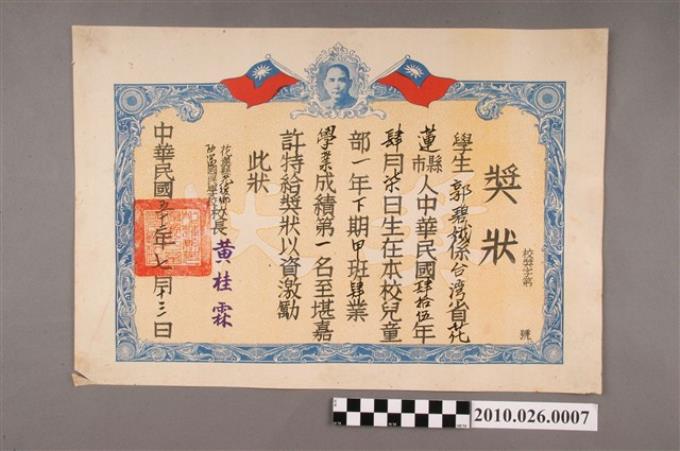 獎狀
校獎字第 號
學生郭碧娥係台灣省花
蓮縣市人中華民國肆拾伍年
肆月柒日生在本校兒童
部一年下期甲班肄業
學業成績第一名至堪嘉
許特給獎狀以資激勵
此狀
花蓮縣
國民學校校長黃桂霖
中華民國五十二年七月十三日
獎狀
2010.026.0007